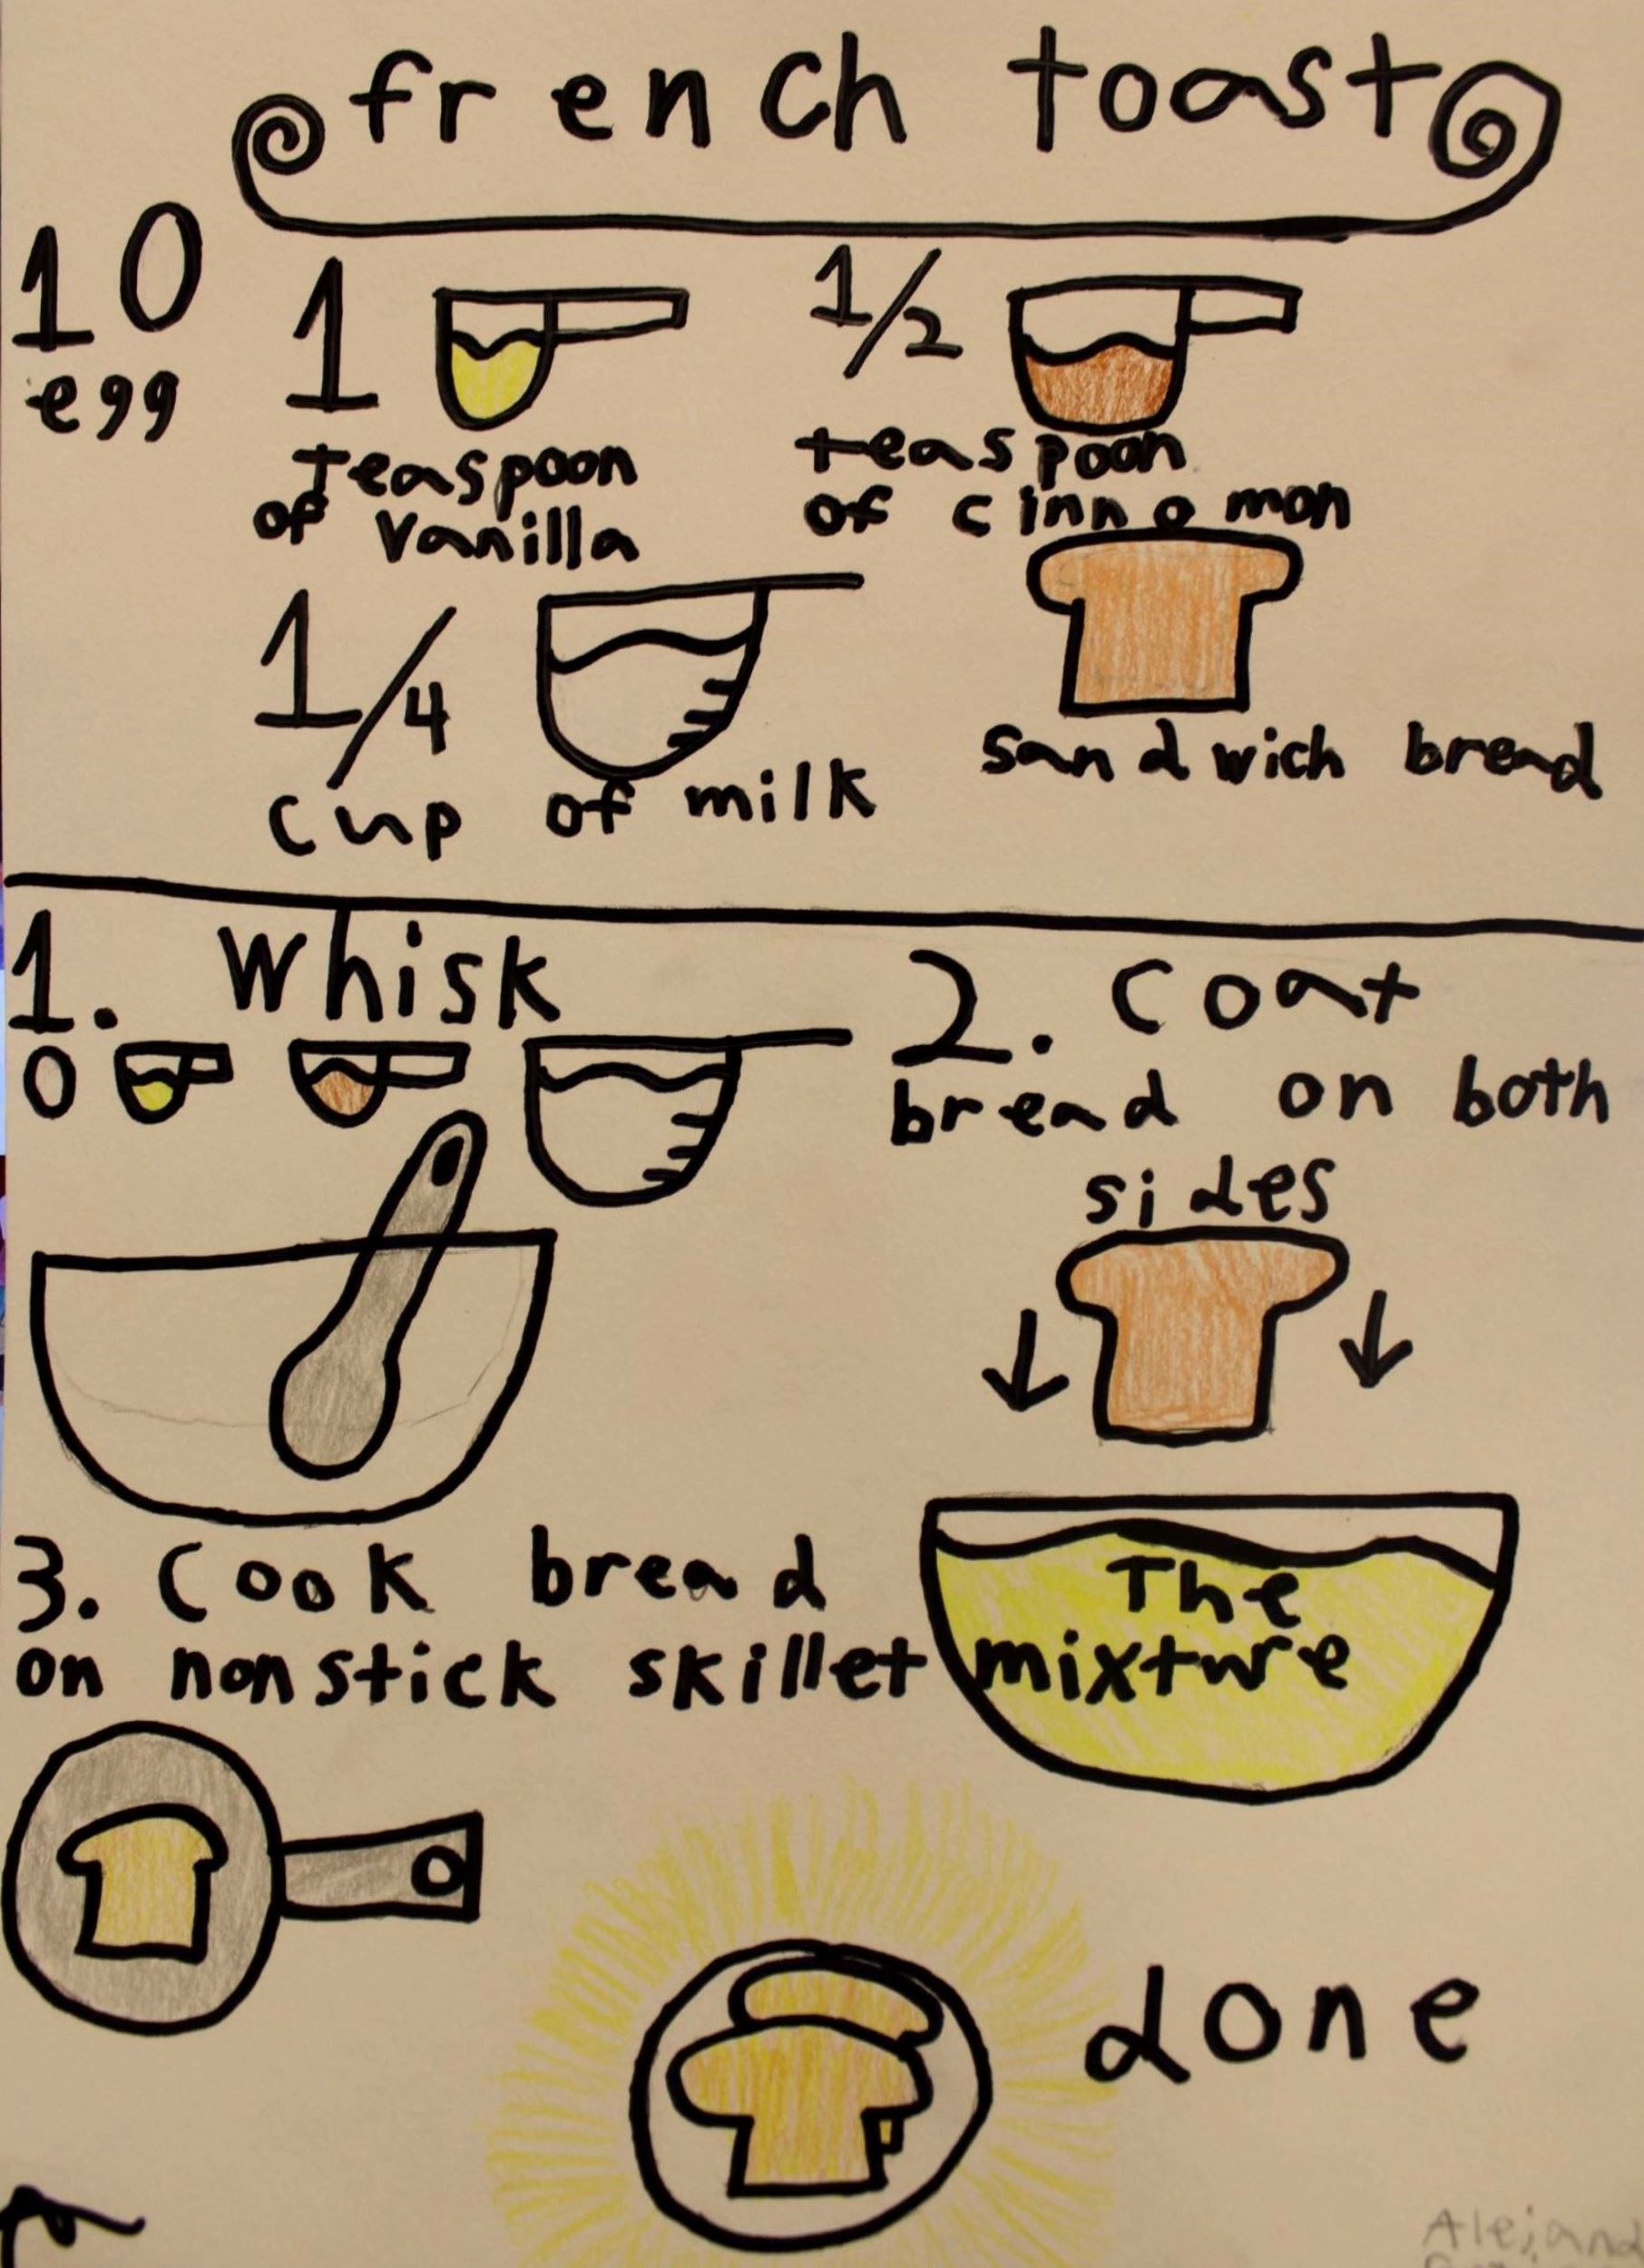 french toast
1
egg
1
teaspoon
of vanilla
1/2
teaspoon
of cinnomon
1/4
cup of milk
sandwich bread
1. Whisk
2. Coat
bread on both
sides
The
mixture
3. Cook bread
on nonstick skillet
done
Alejand